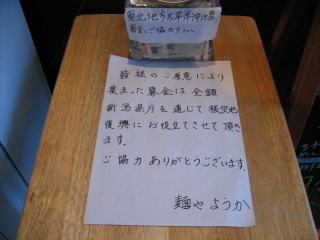 東北地方太平洋沖地震
募金にご協力下さい
皆様のご厚意により
集まった募金は全額
新潟県庁を通じて被災地
復興にお役立てさせて頂き
ます。
ご協力ありがとうございます。
麺や ようか